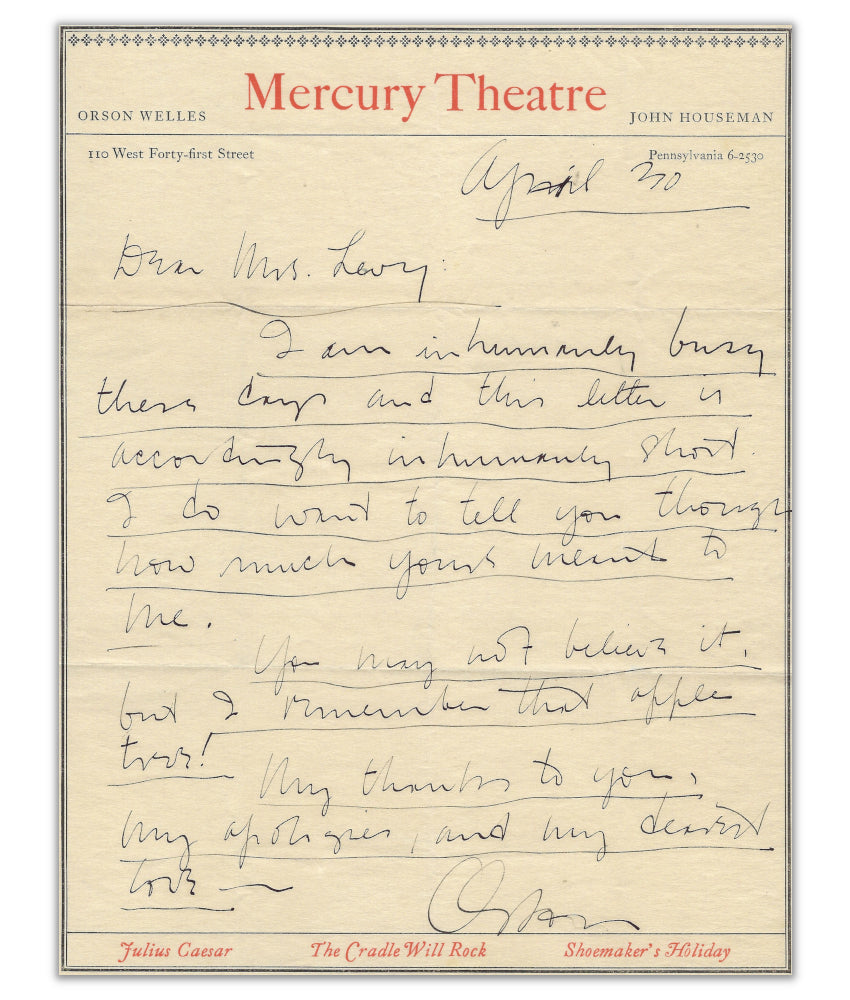 Mercury Theatre
ORSON WELLES
JOHN HOUSEMAN
110 West Forty-first Street
Pennsylvania 6-2530
April 30
Dear Mrs. Levy:
I am inhumanly busy
these days and this letter is
accordingly inhumanly short.
I do want to tell you though
how much yours meant to
me.
You may not believe it,
but I remember that apple
tree!
My thanks to you,
my apologies, and my dearest
love —
Orson
Julius Caesar
The Cradle Will Rock
Shoemaker's Holiday